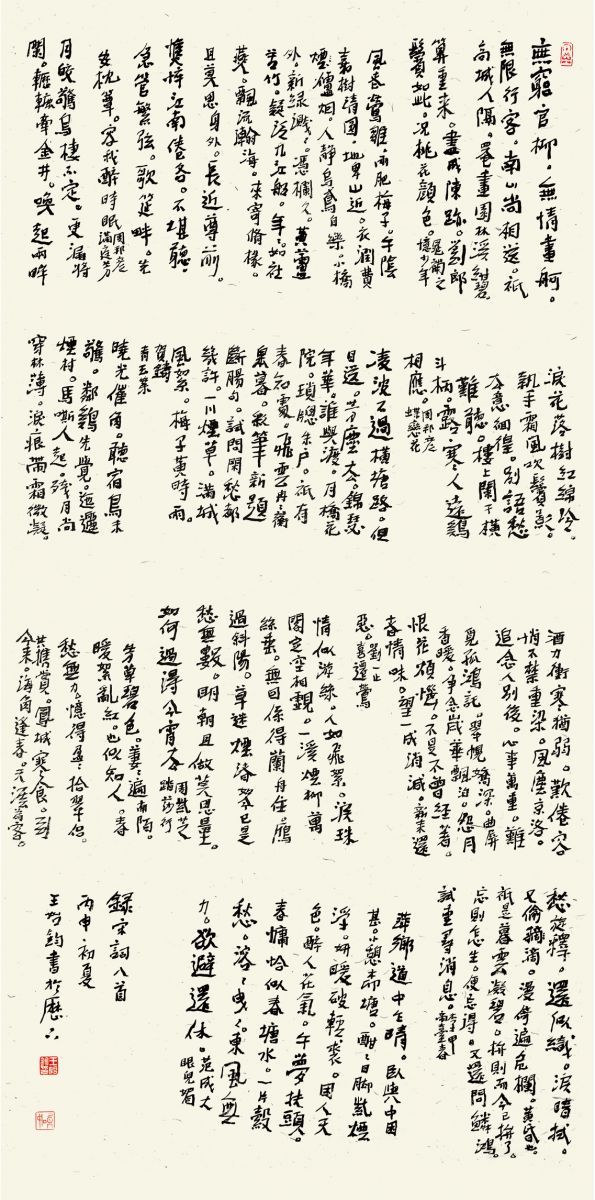 無窮官柳。無情畫舸。
無限行客。南山尚相送。秖
高城人隔。罨畫園林溪紺碧
算重來。盡成陳跡。劉郎
鬢如此。況桃花顏色。晁補之憶少年
風老鶯雛。雨肥梅子。午陰
嘉樹清圓。地卑山近。衣潤費
爐烟。人靜烏鳶自樂。小橋
外。新綠濺濺。憑欄久。黃蘆
苦竹。疑泛九江船。年年。如社
燕。飄流瀚海。來寄脩椽。
且莫思身外。長近尊前。
憔悴江南倦客。不堪聽。
急管繁弦。歌筵畔。先
安枕簟。容我醉時眠 周邦彥滿庭芳
月皎驚烏棲不定。更漏將
闌。轆轤牽金井。喚起兩眸
淚花落枕紅綿冷。
執手霜風吹鬢影。
去意徊徨。別語愁
難聽。樓上闌干橫
斗柄。露寒人遠雞
相應。周邦彥蝶戀花
凌波不過橫塘路。但
目送。芳塵去。錦瑟
年華。誰與渡。月橋花
院。瑣窗朱戶。秖有
春知處。飛雲冉冉蘅
皋暮。彩筆新題
斷腸句。試問閑愁都
幾許。一川煙草。滿城
風絮。梅子黃時雨。
賀鑄青玉案
曉光催角。聽宿鳥未
驚。鄰雞先覺。迤邐
煙村。馬嘶人起。殘月尚
穿林薄。淚痕帶霜微凝。
酒力衝寒猶弱。歎倦客。
悄不禁重染。風塵京洛。
追念人別後。心事萬重。難
覓孤鴻託。翠幌嬌深。曲屏
香暖。爭念歲華飄泊。怨月
恨花煩惱。不是不曾經著。
者情味。望一成消減。新來還
惡。劉一止喜遷鶯
情似游絲。人如飛絮。淚珠
閣定空相覷。一溪煙柳萬
絲垂。無因係得蘭舟住。雁
過斜陽。草迷煙渚如今已是
愁無數。明朝且做莫思量。
如何過得今宵去 周紫芝踏莎行
芳草碧色。萋萋遍南陌。
暖絮亂紅。也似知人。春
愁無力。憶得盈盈拾翠侶。
共攜賞。鳳城寒食。到
今來。海角逢春。天涯為客。
愁旋釋。還似織。淚暗拭。
又偷滴。漫倚遍危欄。黃昏也
秖是暮雲凝碧。拚則而今已拚了。
忘則怎生。便忘得。又還問鱗鴻。
試重尋消息。李甲帝臺春
萍鄉道中乍晴。臥輿中困
甚。小憩柳塘。酣酣日腳紫煙
浮。妍暖破輕裘。困人天
色。醉人花氣。午夢扶頭。
春慵恰似春塘水。一片縠
愁。溶溶曳曳。東風無
力。欲避還休。范成大眼兒媚
錄宋詞八首
丙申初夏
鈞書於歷下